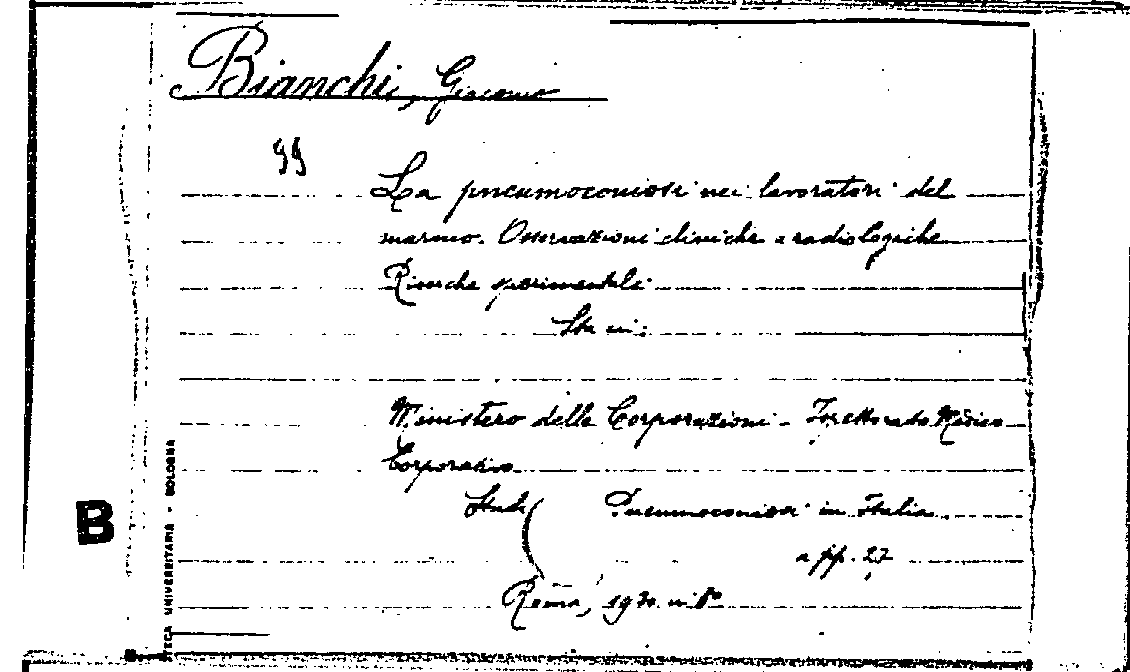 Bianchi, Giacomo
99
La pneumoconiosi nei lavoratori del
marmo. Osservazioni cliniche e radiologiche
Ricerche sperimentali
Sta in:
Ministero delle Corporazioni - Ispettorato Medico
Corporativo
Studi Pneumoconiosi in Italia
a pp. 27
Roma, 1930 in 8°
B
TECA UNIVERSITARIA - BOLOGNA